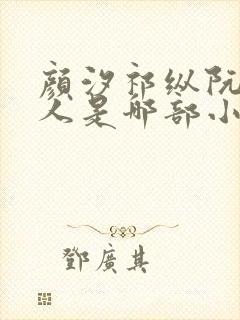 顔汐祁纵阮
人是哪部小
鄧廣其